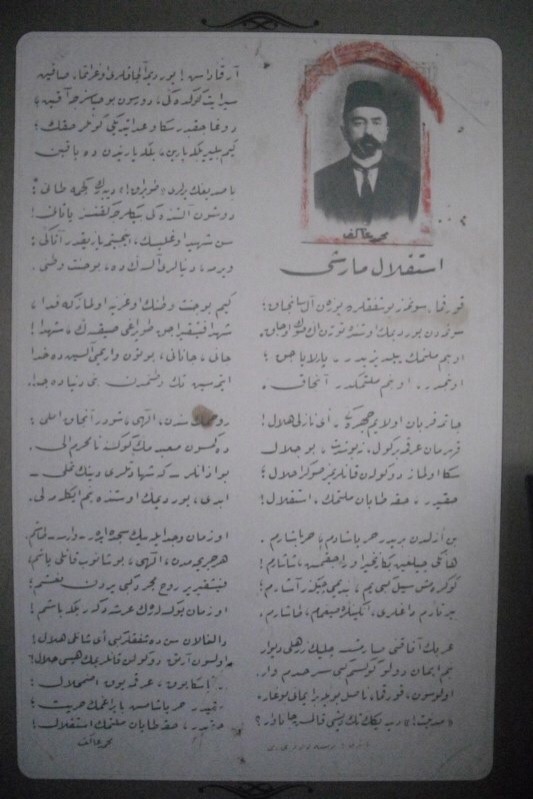 محمد عاكف
استقلال مارشی
قورقما، سونمز بو شفقلرده یوزن آل سانجاق؛
سونمدن یوردیمك اوستنده توتن اك صوك اوجاق.
او بنم ملتمك ییلدیزیدر، پارلایاجق؛
او بنمدر، او بنم ملتمكدر آنجاق.
چاتمه، قربان اولایم، چهره‌كی ای نازلی هلال!
قهرمان عرقمه بر كول، نه بو شدت، بو جلال
سكا اولماز دوكولن قانلریمز صوكرا حلال؛
حقیدر، حقه طاپان ملتمك، استقلال!
بن ازلدن بریدر حر یاشادم، حر یاشارم.
هانكی چیلغین بكا زنجیر اوراجقمش، شاشارم!
كوكره‌مش سیل كبی یم، بندیمی چیكنر، آشارم؛
ییرتارم داغلری، انكینلره صیغمام، طاشارم.
غربك آفاقنی صارمشسه چلیك زرهلی دیوار
بنم ایمان دولو كوكسم كبی سرحدم وار.
اولوسون، قورقما، ناصل بویله بر ایمانی بوغار،
«مدنیت!» دیدیكك تك دیشی قالمش جاناوار؟
آرقداش! یوردیمه آلچاقلری اوغراتمه، صاقین
سپر ایت كوكده‌كی، دورسون بو حیاسزجه آقین
دوغاجقدر سكا وعد ایتدیكی كونلر حقك؛
كیم بیلیر بلكه یارین، بلكه یاریندن ده یاقین
باصدیغك یرلری «طوپراق!» دیه‌رك كچمه طانی؛
دوشون آلتنده‌كی بیكلرجه كفنسز یاتانی!
سن شهید اوغلیسك، اینجیتمه یازیقدر آتاكی؛
ویرمه، دنیالری آلسه‌ك ده، بو جنت وطنی.
كیم بو جنت وطنك اوغرینه اولماز كه فدا،
شهدا فیشقیراجق طوپراغی صیقسه‌ك، شهدا!
جانی، جانانی، بوتون واریمی آلسین ده خدا
ایتمه‌سین تك وطنمدن بنی دنیاده جدا.
روحمك سندن، الٓهی، شودر آنجاق املی:
دكمه‌سون معبدمك كوكسنه نامحرم الی.
بو اذانلر ـ كه شهادتلری دینك تملی ـ
ابدی، یوردیمك اوستنده بنم ایكله‌ملی.
او زمان وجد ایله بیك سجده ایدر ـ وارسه ـ طاشم
هر جریحه‌مدن، الٓهی، بوشانوب قانلی یاشم
فیشقیریر روح مجرد كبی یردن نعشم؛
او زمان یوكسله‌رك عرشه دكر بلكه باشم!
دالغالان سن ده شفقلر كبی ای شانلی هلال!
اولسون آرتق دوكولن قانلریمك هپسی حلال!
ابدیاً سكا یوق، عرقمه یوق اضمحلال؛
حقیدر حر یاشامش بایراغمك حریت؛
حقیدر، حقه طاپان ملتمك استقلال!
محمد عاكف